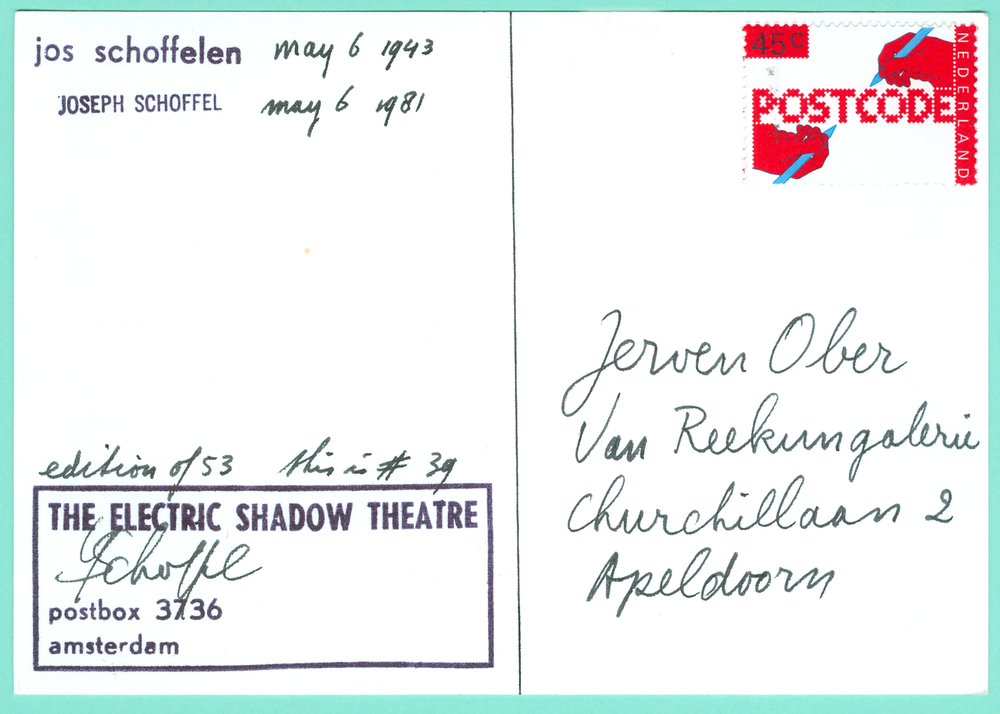 jos schoffelen may 6 1943
JOSEPH SCHOFFEL may 6 1981
edition of 53 this is # 39
THE ELECTRIC SHADOW THEATRE
Schoffel
postbox 3736
amsterdam
45c
NEDERLAND
POSTCODE
Jerven Ober
Van Reekumgalerie
Churchillaan 2
Apeldoorn